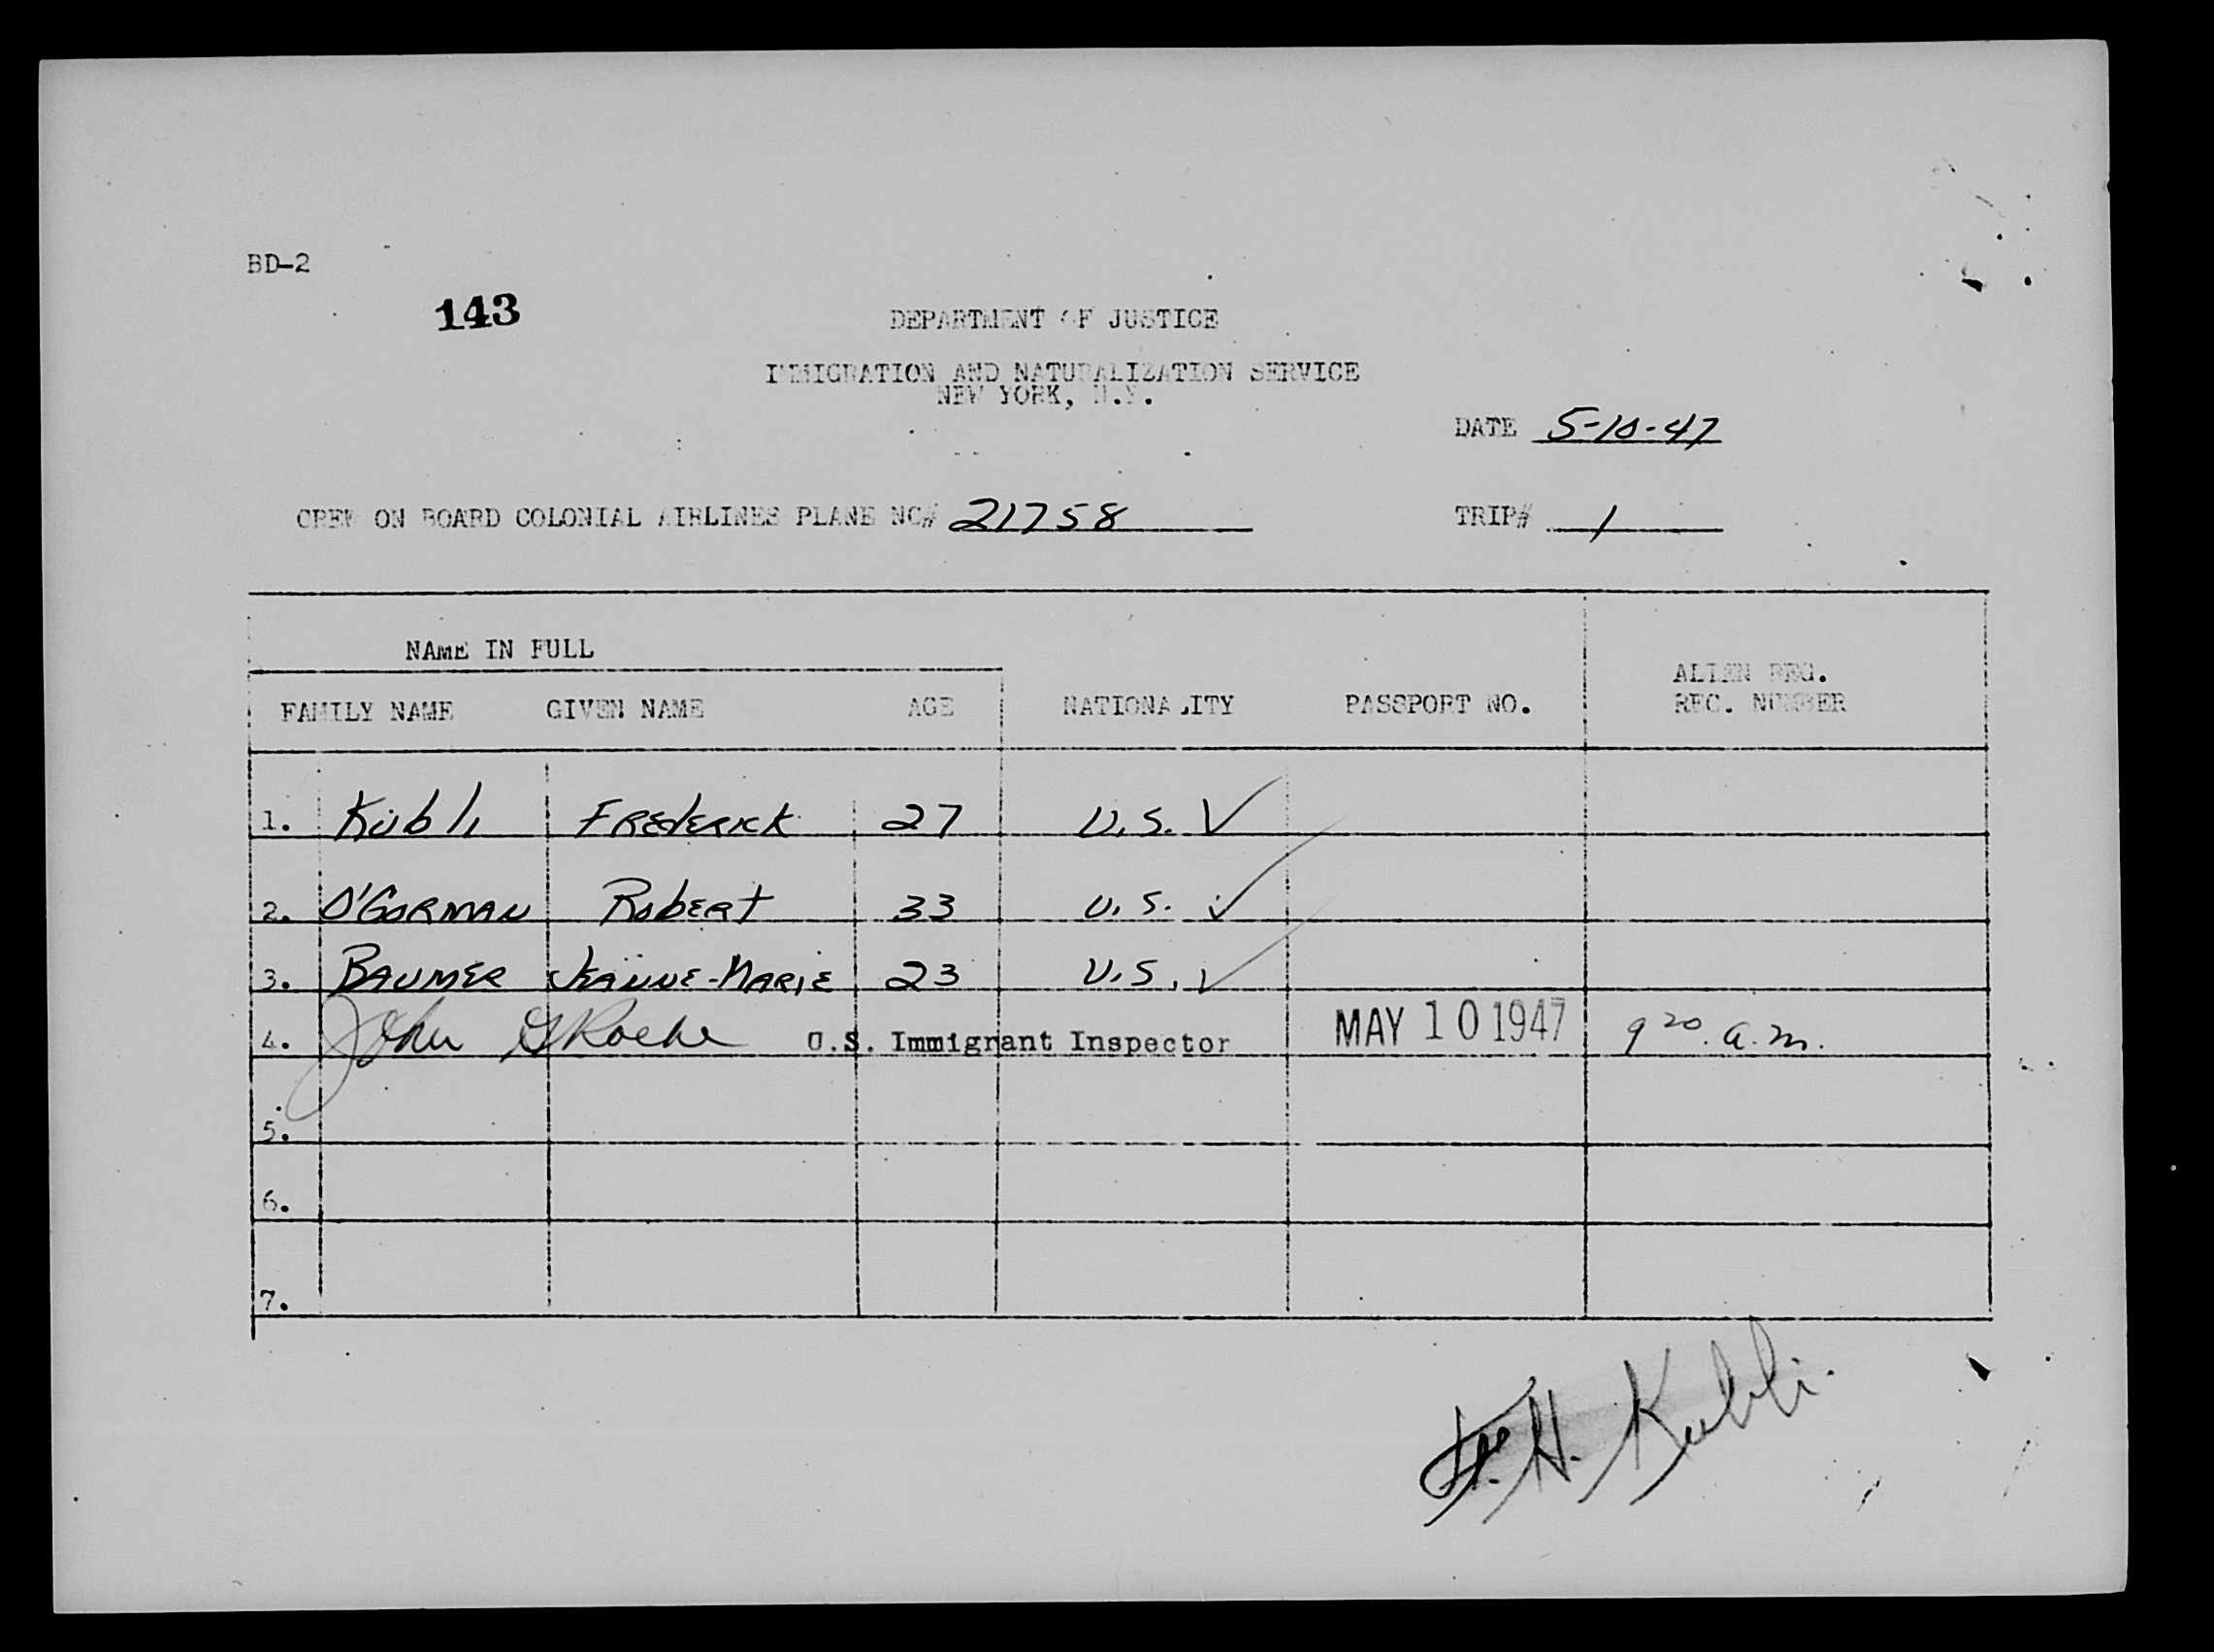 BD-2
143
DEPARTMENT OF JUSTICE
IMMIGRATION AND NATURALIZATION SERVICE
NEW YORK, N.Y.
DATE 5-10-47
CREW ON BOARD COLONIAL AIRLINES PLANE NC# 21758 TRIP# 1
NAME IN FULL
FAMILY NAME GIVEN NAME AGE NATIONALITY PASSPORT NO. ALIEN REG.
REC. NUMBER
1. Kubli FREDERICK 27 U.S. ✓
2. O'GORMAN RobERT 33 U.S. ✓
3. BAUMER JEANNE-MARIE 23 U.S. ✓
4. John G Roche U.S. Immigrant Inspector MAY 10 1947 9 20 a.m.
5.
6.
7.
F.H. Kubli